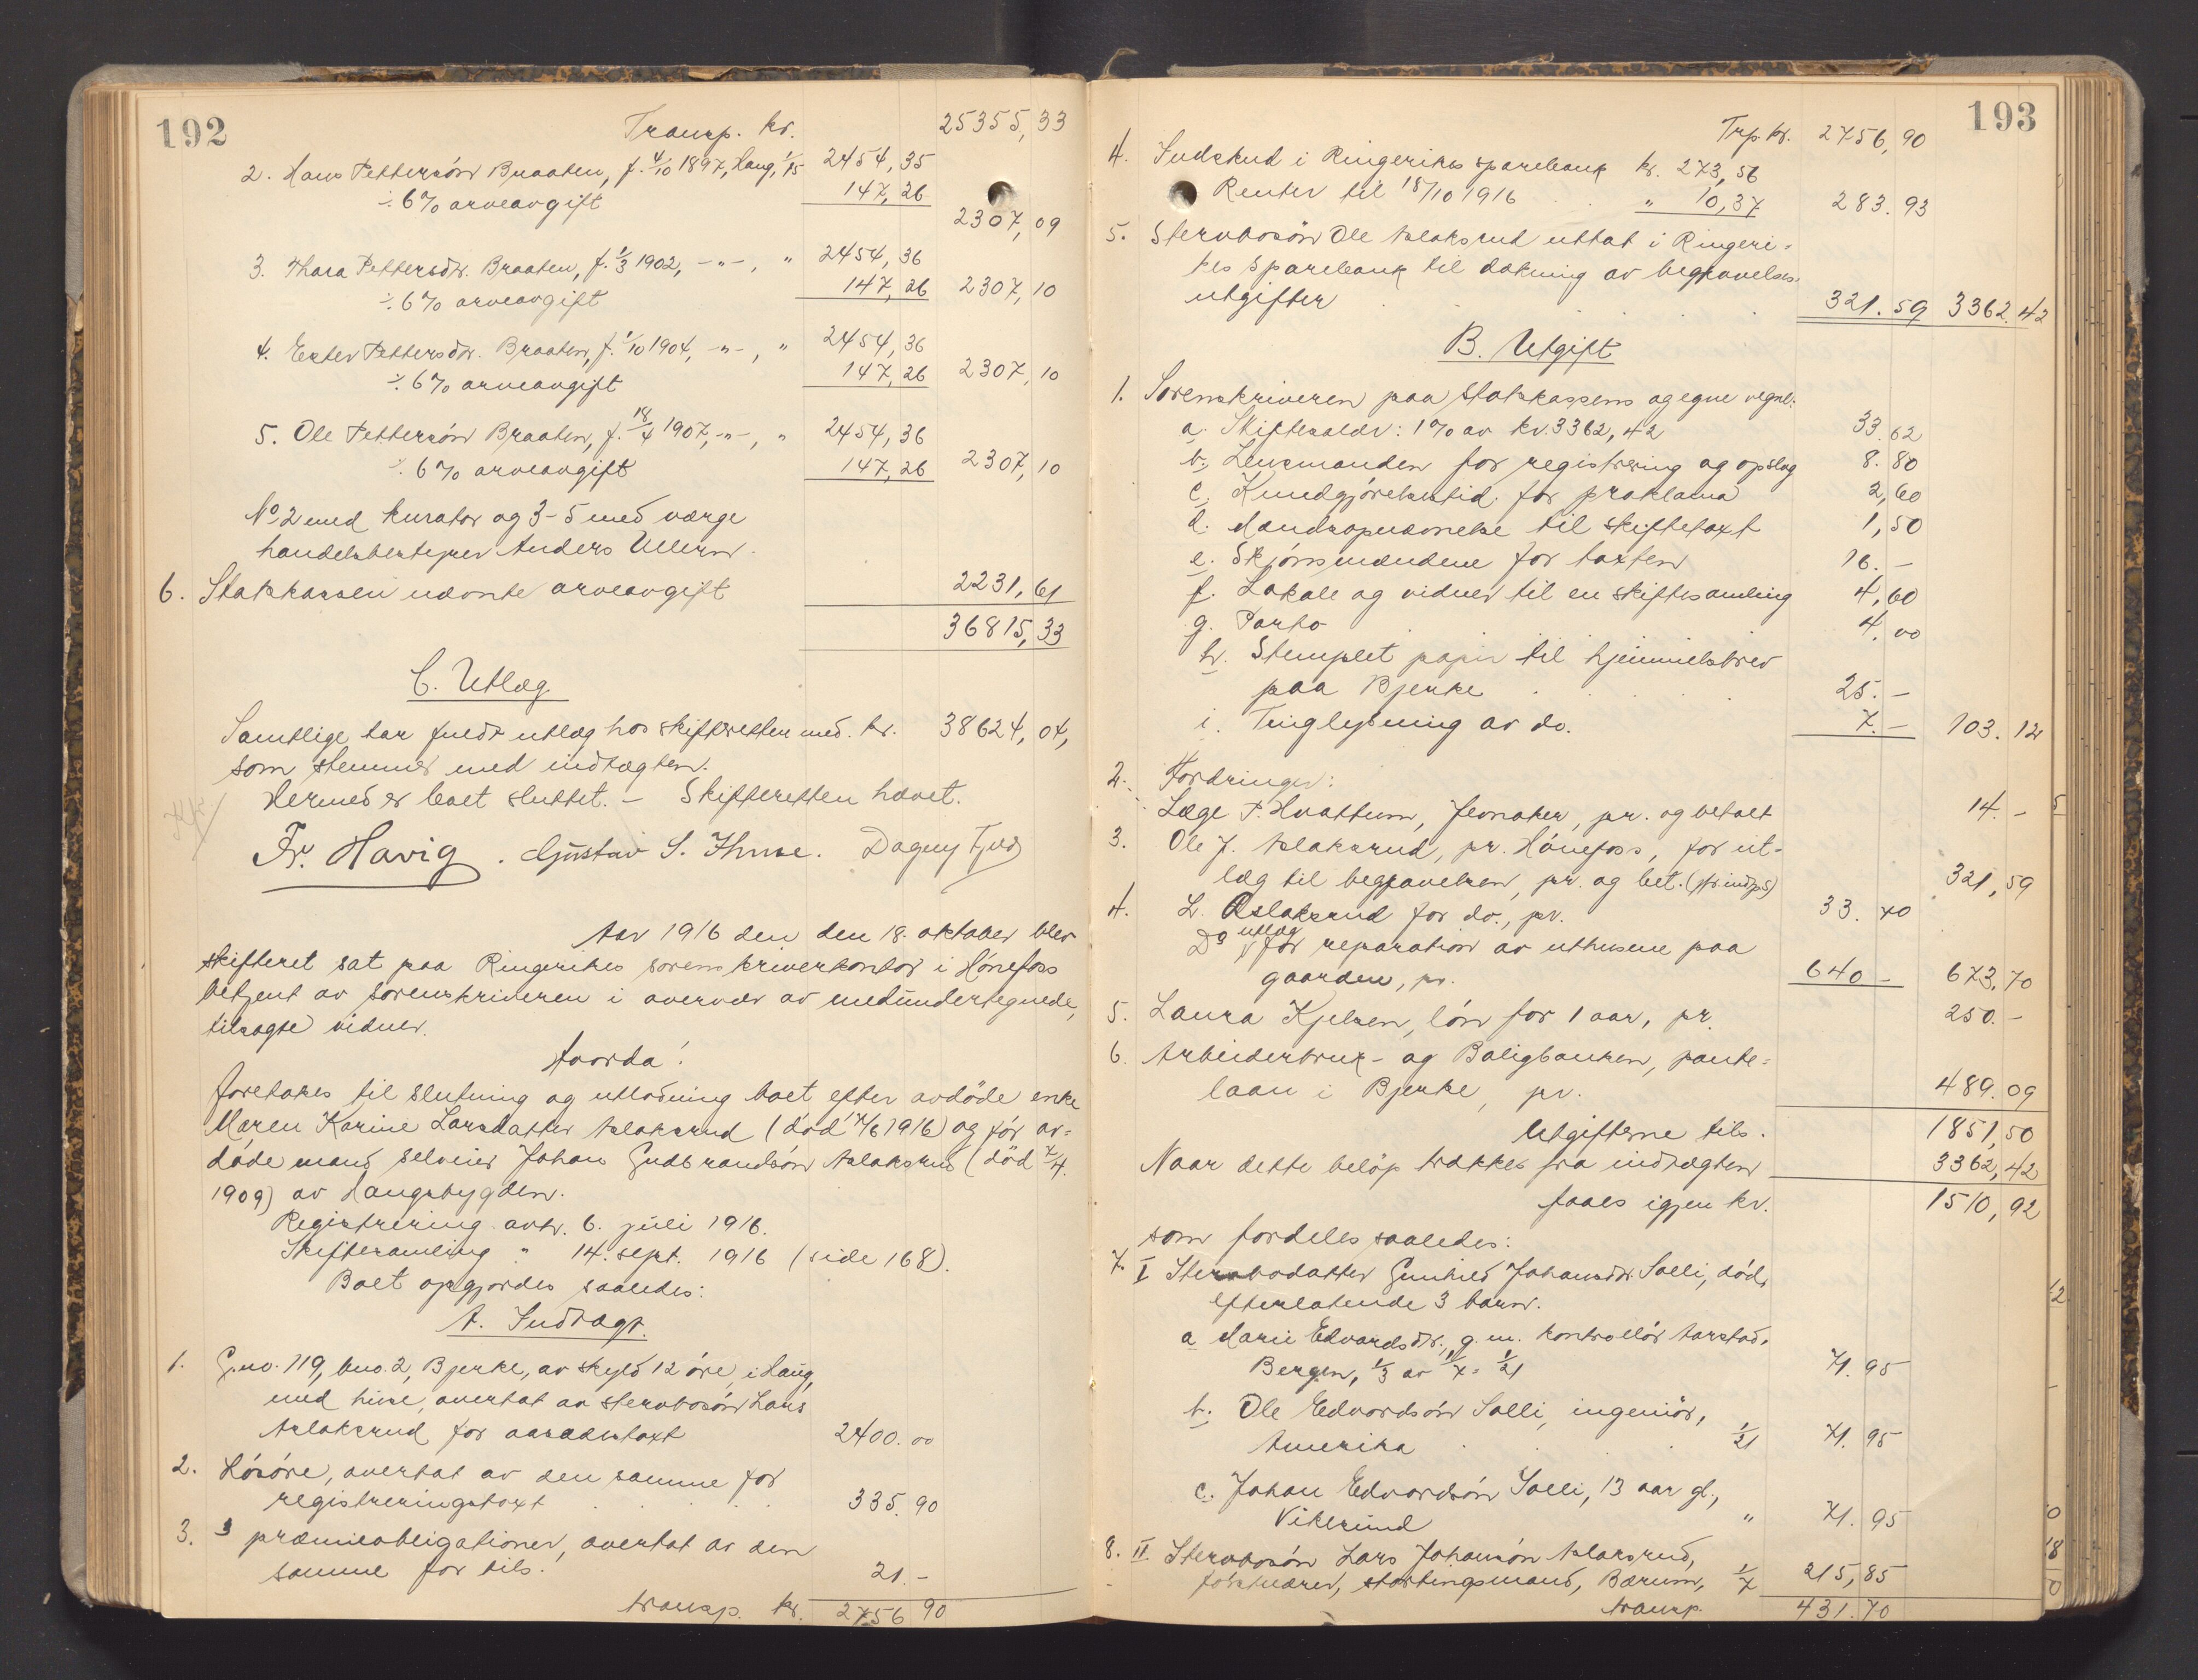 192
Transp. kr. 25355,33
2. Hans Pettersön Braaten, f. 4/10 1897, Haug, 1/15 2454,35
÷ 6% arveavgift 147,26 2307,09
3. Thara Pettersdtr. Braaten, f. 1/3 1902, -"-, " 2454,36
÷ 6% arveavgift 147,26 2307,10
4. Ester Pettersdtr. Braaten, f. 1/10 1904, -"-, " 2454,36
÷ 6% arveavgift 147,26 2307,10
5. Ole Pettersön Braaten, f. 18/4 1907, -"-, " 2454,36
÷ 6% arveavgift 147,26 2307,10
No 2 med kurator og 3-5 med værge
handelsbestyrer Anders Ullern.
6. Statskassen nævnte arveavgift 2231,61
36815,33
C. Utlæg
Samtlige har fuldt utlæg hos skifteretten med kr. 38624,04,
som stemmer med indtægten.
Hermed er boet sluttet. – Skifteretten hævet.
Fr. Havig. Gustav S. Thrane. Dagny Fjeld
Aar 1916 den den 18. oktober blev
skifteret sat paa Ringerikes sorenskriverkontor i Hönefoss
betjent av sorenskriveren i overvær av medundertegnede,
tilsagte vidner.
Hvorda:
foretokes til slutning og utlodning boet efter avdöde enke
Maren Karine Larsdatter Aslaksrud (död 7/6 1916) og för av=
döde mand selveier Johan Gudbrandsön Aslaksrud (död 7/4
1909) av Haugsbygden.
Registrering avh. 6. juli 1916.
Skiftesamling " 14. sept. 1916 (side 168).
Boet opgjordes saaledes:
A. Indtægt.
1. G.no. 119, bno. 2, Bjerke, av skyld 12 öre, i Haug,
med huse, overtat av stervbosön Lars
Aslaksrud for aasædestaxt 2400.00
2. Lösöre, overtat av den samme for
registreringstaxt 335.90
3. 3 præmieobligationer, overtat av den
samme for tils. 21.-
transp. kr. 2756 90
193
Trp. kr. 2756,90
4. Indskud i Ringerikes sparebank kr. 273,56
Renter til 18/10 1916 . . " 10,37 283.93
5. Stervbosön Ole Aslaksrud uttat i Ringeri=
kes Sparebank til dækning av begravelses-
utgifter 321.59 3362.42
B. Utgift
1. Sorenskriveren paa Statskassens og egne vegne:
a. Skiftesalær: 1% av kr. 3362,42 33.62
b. Lensmanden for registrering og opslag 8.80
c. Kundgjörelsestid. for proklama 2,60
d. Mændsopnævnelse til skiftetaxt 1,50
e. Skjönsmændene for taxten 16.-
f. Lokale og vidner til en skiftesamling 4,60
g. Porto 4.00
h. Stemplet papir til hjemmelsbrev
paa Bjerke 25.-
i. Tinglysning av do. 7.- 103.12
2. Fordringer:
Læge P. Hvattum, Jevnaker, pr. og betalt 14.-
3. Ole J. Aslaksrud, pr. Hönefoss, for ut-
læg til begravelsen, pr. og bet. (jfr. indt. p 5) 321,59
4. L. Aslaksrud for do., pr. 33.70
Do utlæg for reparation av uthusene paa
gaarden, pr. 640 - 673.70
5. Laura Kjelsen, lön for 1 aar, pr. 250.-
6. Arbeiderbruk- og Boligbanken, pante=
laan i Bjerke, pr. 489.09
Utgifterne tils. 1851,50
Naar dette belöp trækkes fra indtægten 3362,42
faaes igjen kr. 1510,92
som fordeles saaledes:
7. I Stervbodatter Gunhild Johansdtr. Solli, död,
efterlatende 3 barn.
a Marie Edvardsdtr., g. m. kontrollör Aarstad,
Bergen, 1/3 av 1/7 = 1/21 71.95
b. Ole Edvardsön Solli, ingeniör,
Amerika . . . 1/21 71.95
c. Johan Edvardsön Solli, 13 aar gl.,
Vikersund " 71.95
8. II Stervbosön Lars Johansön Aslaksrud,
stortingsmand, Bærum, 1/7 215,85
transp. 431.70